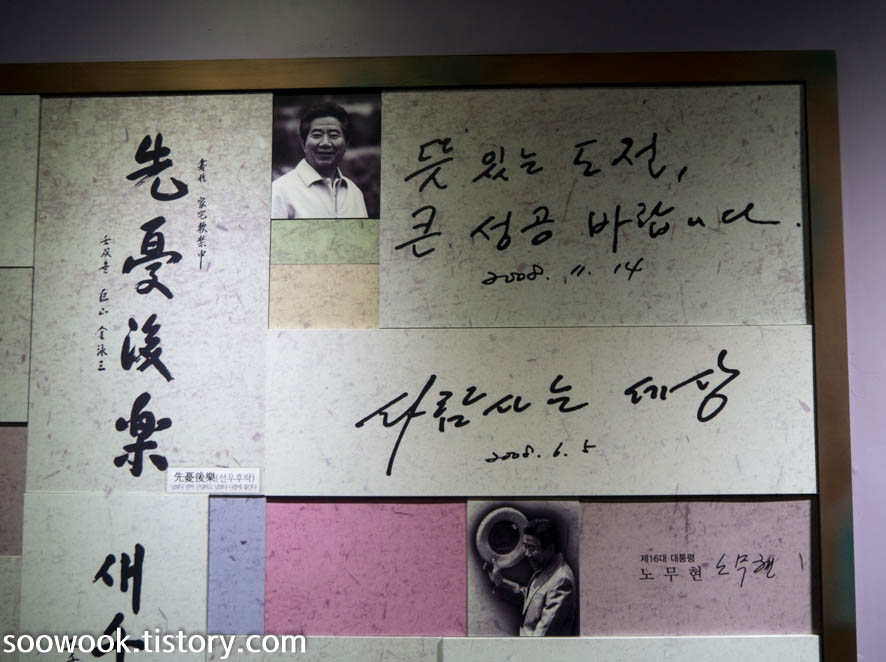 先憂後楽
壬戌冬 巨山 金泳三
先憂後樂(선우후락)
뜻 있는 도전,
큰 성공 바랍니다.
2008. 11. 14
사람사는 세상
2008. 6. 5
새
제16대 대통령
노무현 노무현
soowook.tistory.com